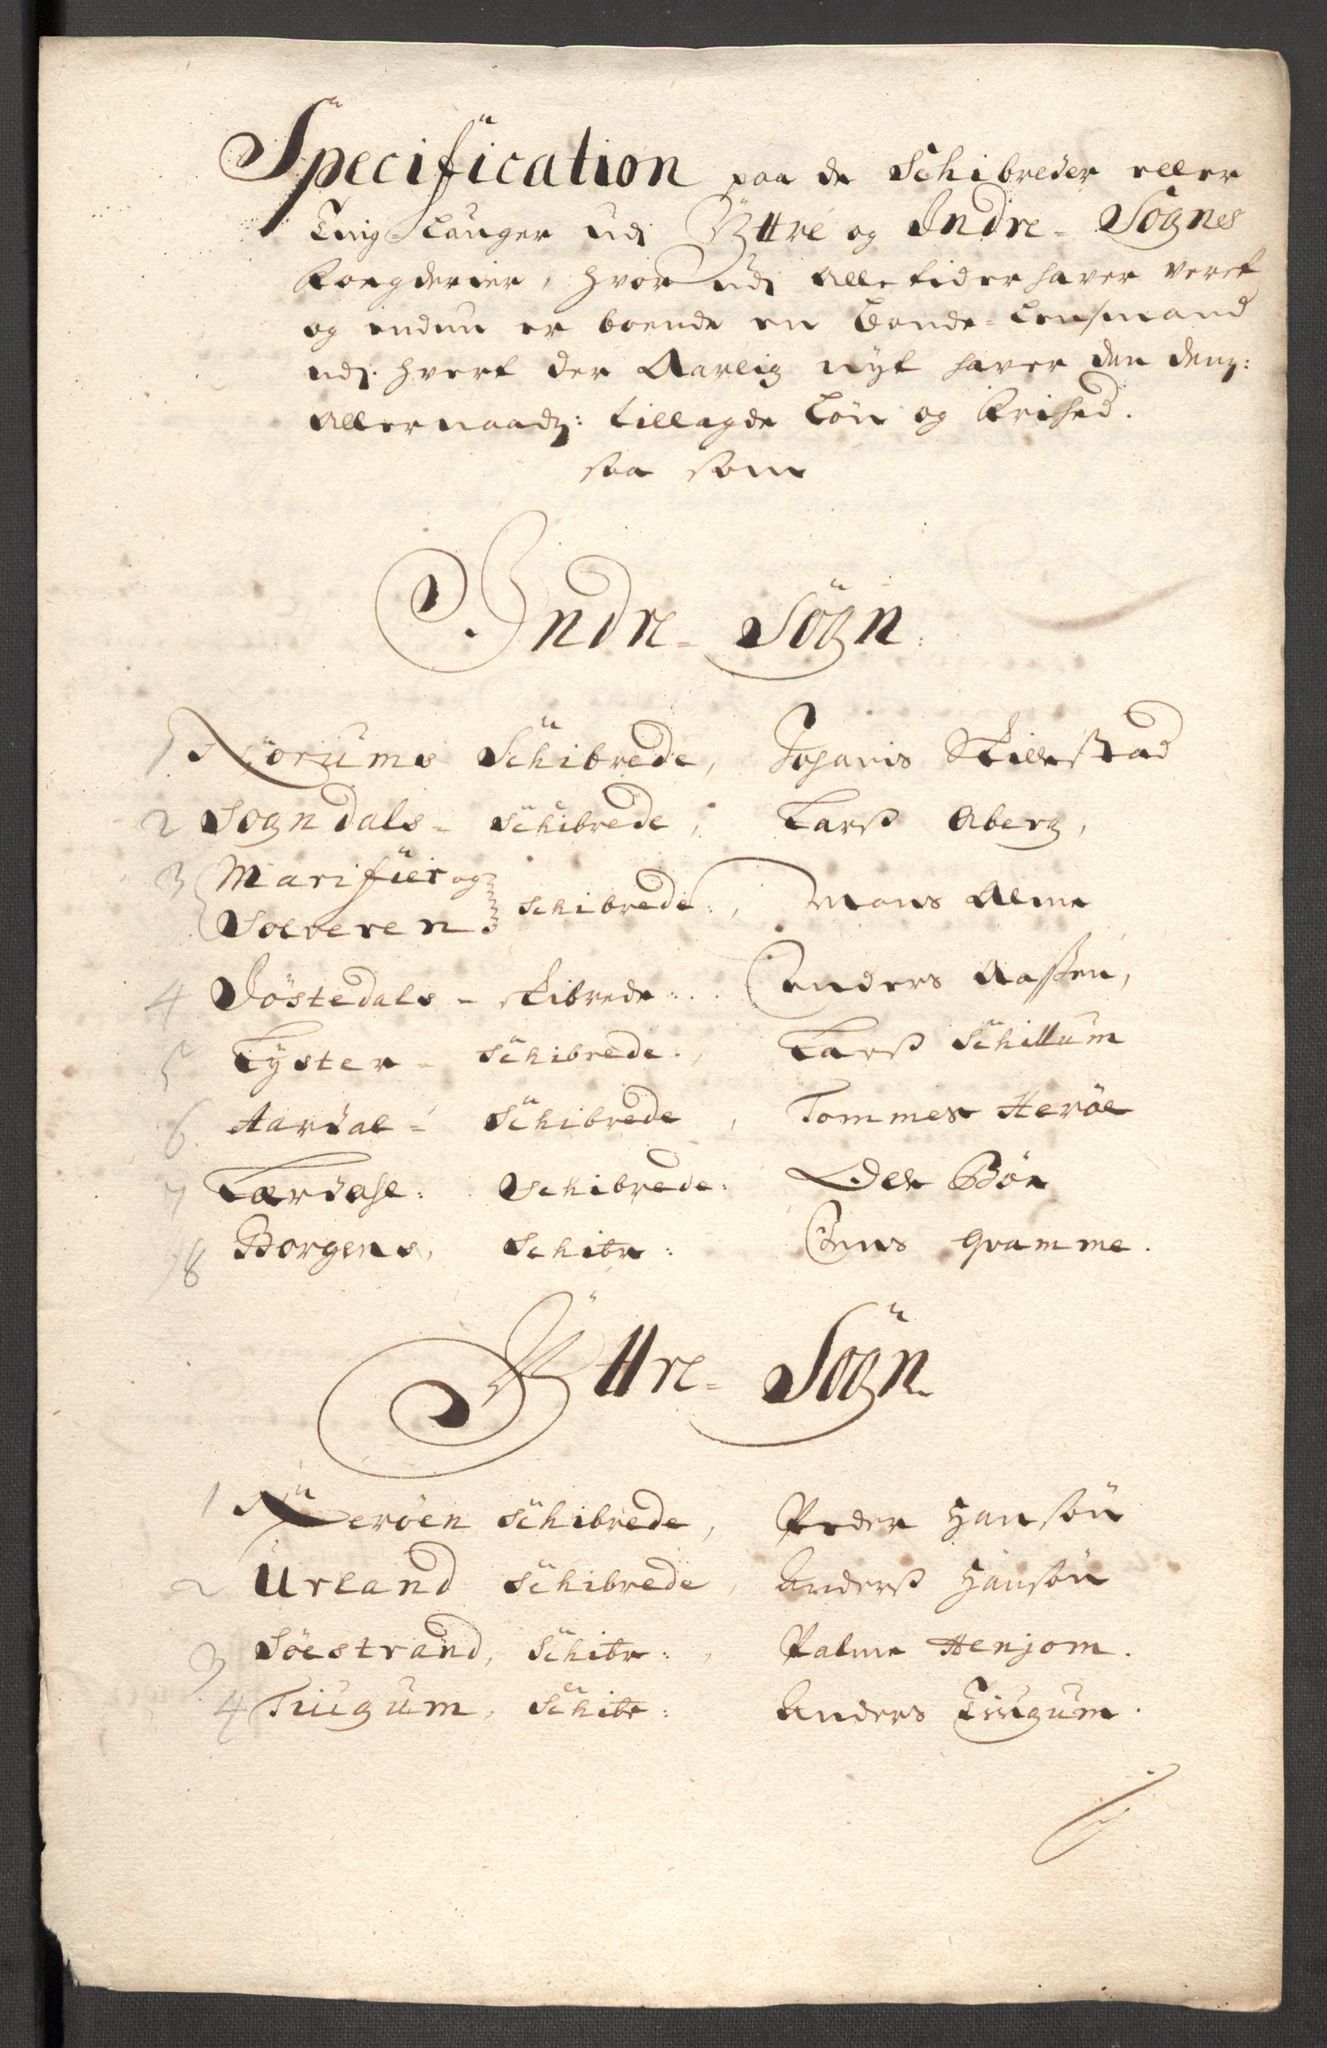 Specification paa de Schibreder eller
Ting-Lauger udi Ÿttre og Indre-Sognes
Fougderier, hvor udi alle tider haver veret
og endnu er boende en Bonde-Lensmand
udj hvert der Aarlig nÿt haver den deris:
allernaads: tillagde Løn og Frihed.
saa som
Indre-Sogn.
1 Norums Schibrede, Johanis Skielstad
2 Sogndals-Schibrede, Larss Aberg,
3 Marifier og
Solveren Schibrede, Mons Alme
4 Jostedals-skibrede... Enders Aassen,
5 Lyster-Schibrede., Larss Schillum
6 Aardal-Schibrede, Tommes Herøe
7 Lærdahl: Schibrede: Ole Bøe
8 Borgens, Schibr: Jens Gramme.
Ÿttre-Sogn.
1 Nerøen Schibrede, Peder Hansøn
2 Urland Schibrede, Anderss Hansøn
3 Søestrand, Schibr:, Palme Henjom.
4 Tiugum, Schibr: Anders Tiugum.